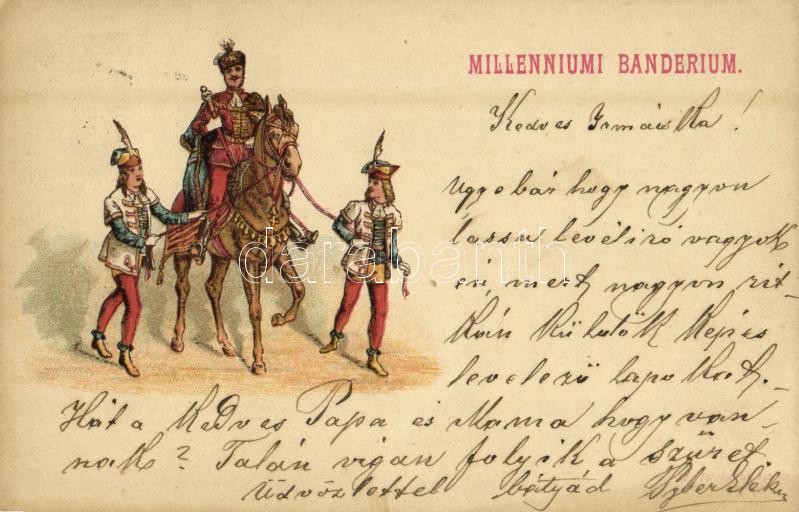 MILLENNIUMI BANDERIUM.
Kedves Irmácska!
Ugyebár hogy nagyon
lassu levéliró vagyok
én, mert nagyon rit-
kán küldök képes
levelező lapokat.
Hát a kedves Papa és Mama hogy van-
nak? Talán vigan folyik a szüret.
Üdvözlettel bátyád
darabanth